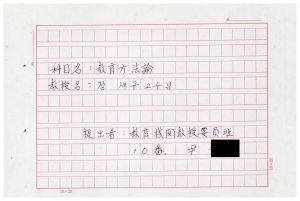 科目名 : 教育方法論
教授名 : 정 재구 교수님
提出者 : 教育機関教授要員班
10番. 尹